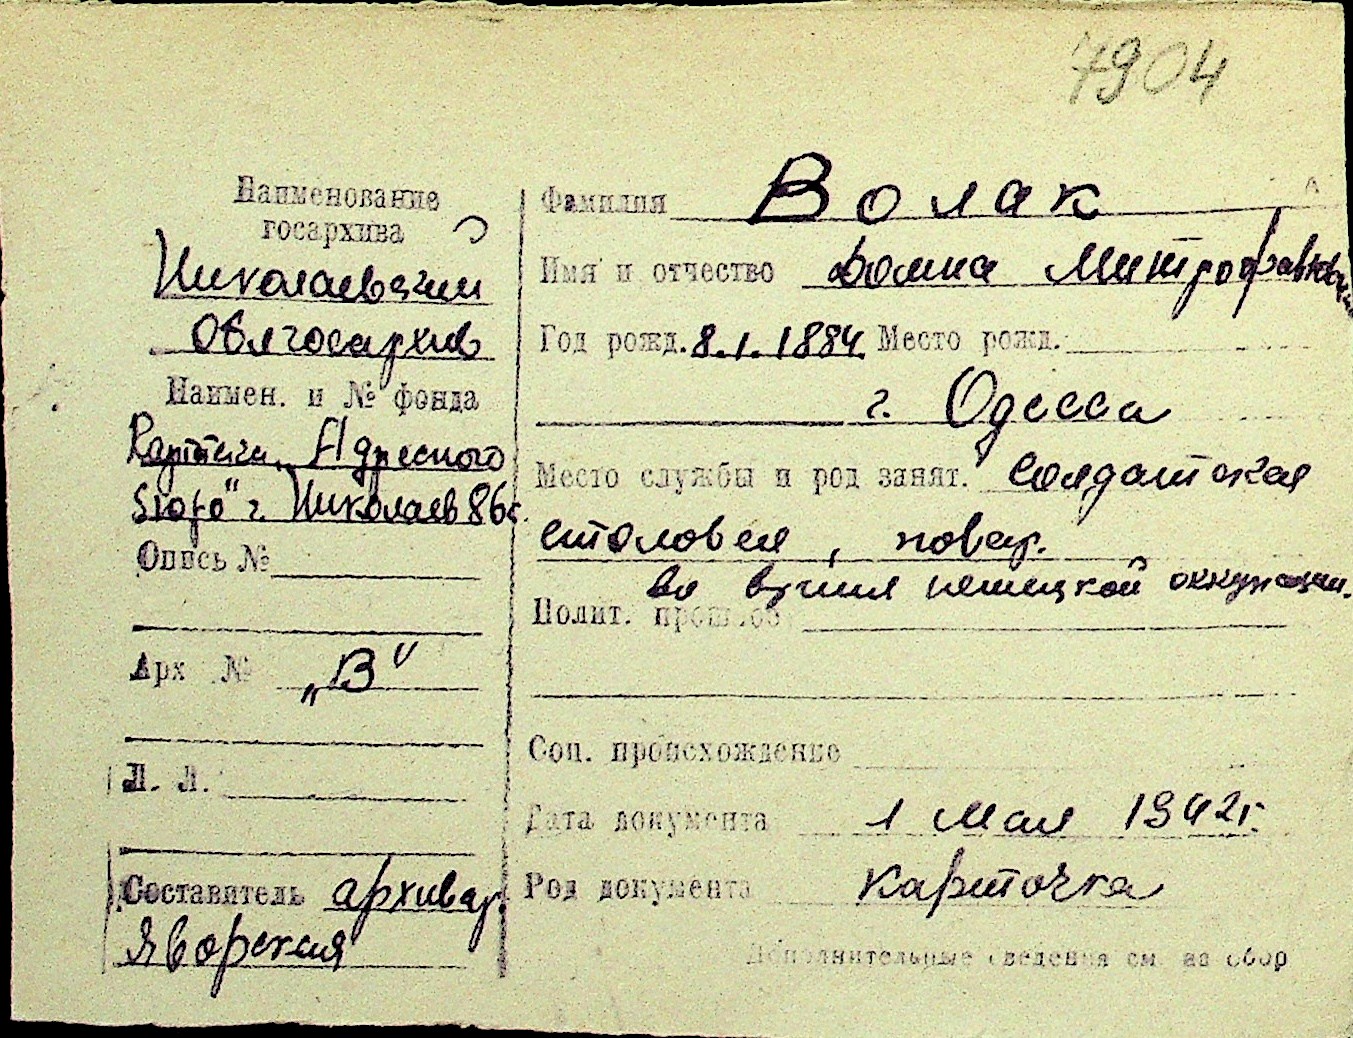 7904
Наименование
госархива
Николаевский
Облгосархив
Наимен. и № фонда
Картотека „Адресного
бюро" г. Николаев 86г.
Опись №
Арх №
„В"
Л. Л.
Составитель архивар.
Яворская
Фамилия Волак
Имя и отчество Домна Митрофановна
Год рожд. 8.1.1884 Место рожд.
г. Одесса
Место службы и род занят. Солдатская
столовая, повар.
во время немецкой оккупации.
Полит. прошлое
Соц. происхождение
Дата документа 1 мая 1942г.
Род документа карточка
Дополнительные сведения см. на обор